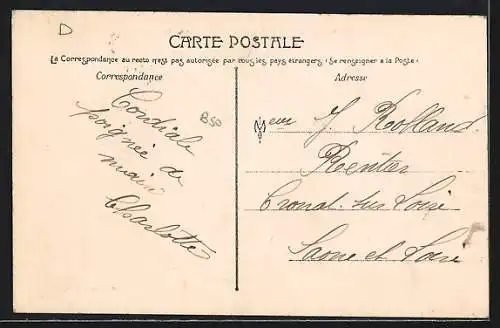 D
CARTE POSTALE
La Correspondance au recto n'est pas autorisée par tous les pays étrangers (Se renseigner à la Poste)
Correspondance
Adresse
850
Cordiale
poignée de
main
Charlotte
J. Rolland
Rentier
Cronat sur Loire
Saone et Loire